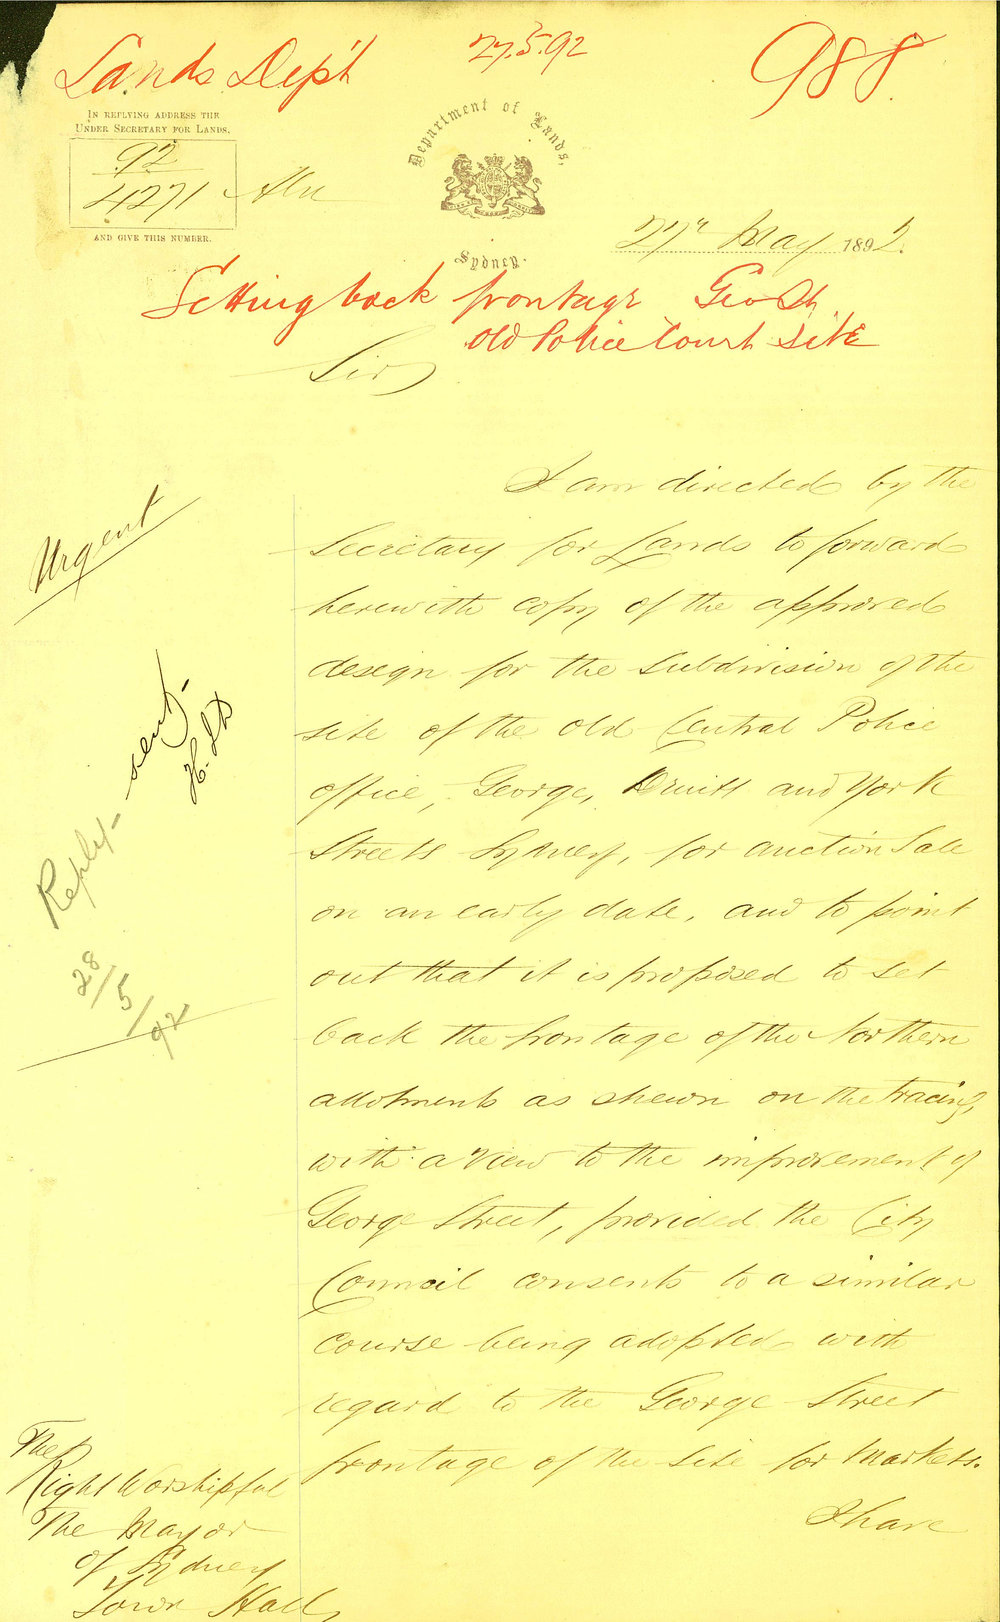 Lands Dep't
27.5.92
988.
IN REPLYING ADDRESS THE
UNDER SECRETARY FOR LANDS.
92
4271
AND GIVE THIS NUMBER.
Department of Lands,
Sydney.
27th May 1892.
Setting back frontage Geo St
old Police Court Site
Sir,
I am directed by the
Secretary for Lands to forward
herewith copy of the approved
design for the subdivision of the
site of the old Central Police
office, George, Druitt and York
Streets Sydney, for auction Sale
on an early date, and to point
out that it is proposed to set
back the frontage of the Northern
allotments as shewn on the tracing,
with a view to the improvement of
George Street, provided the City
Council consents to a similar
course being adopted with
regard to the George Street
frontage of the Site for Markets.
I have
Urgent
Reply sent
28/5/92
The
Right Worshipful
The Mayor
of Sydney
Town Hall,